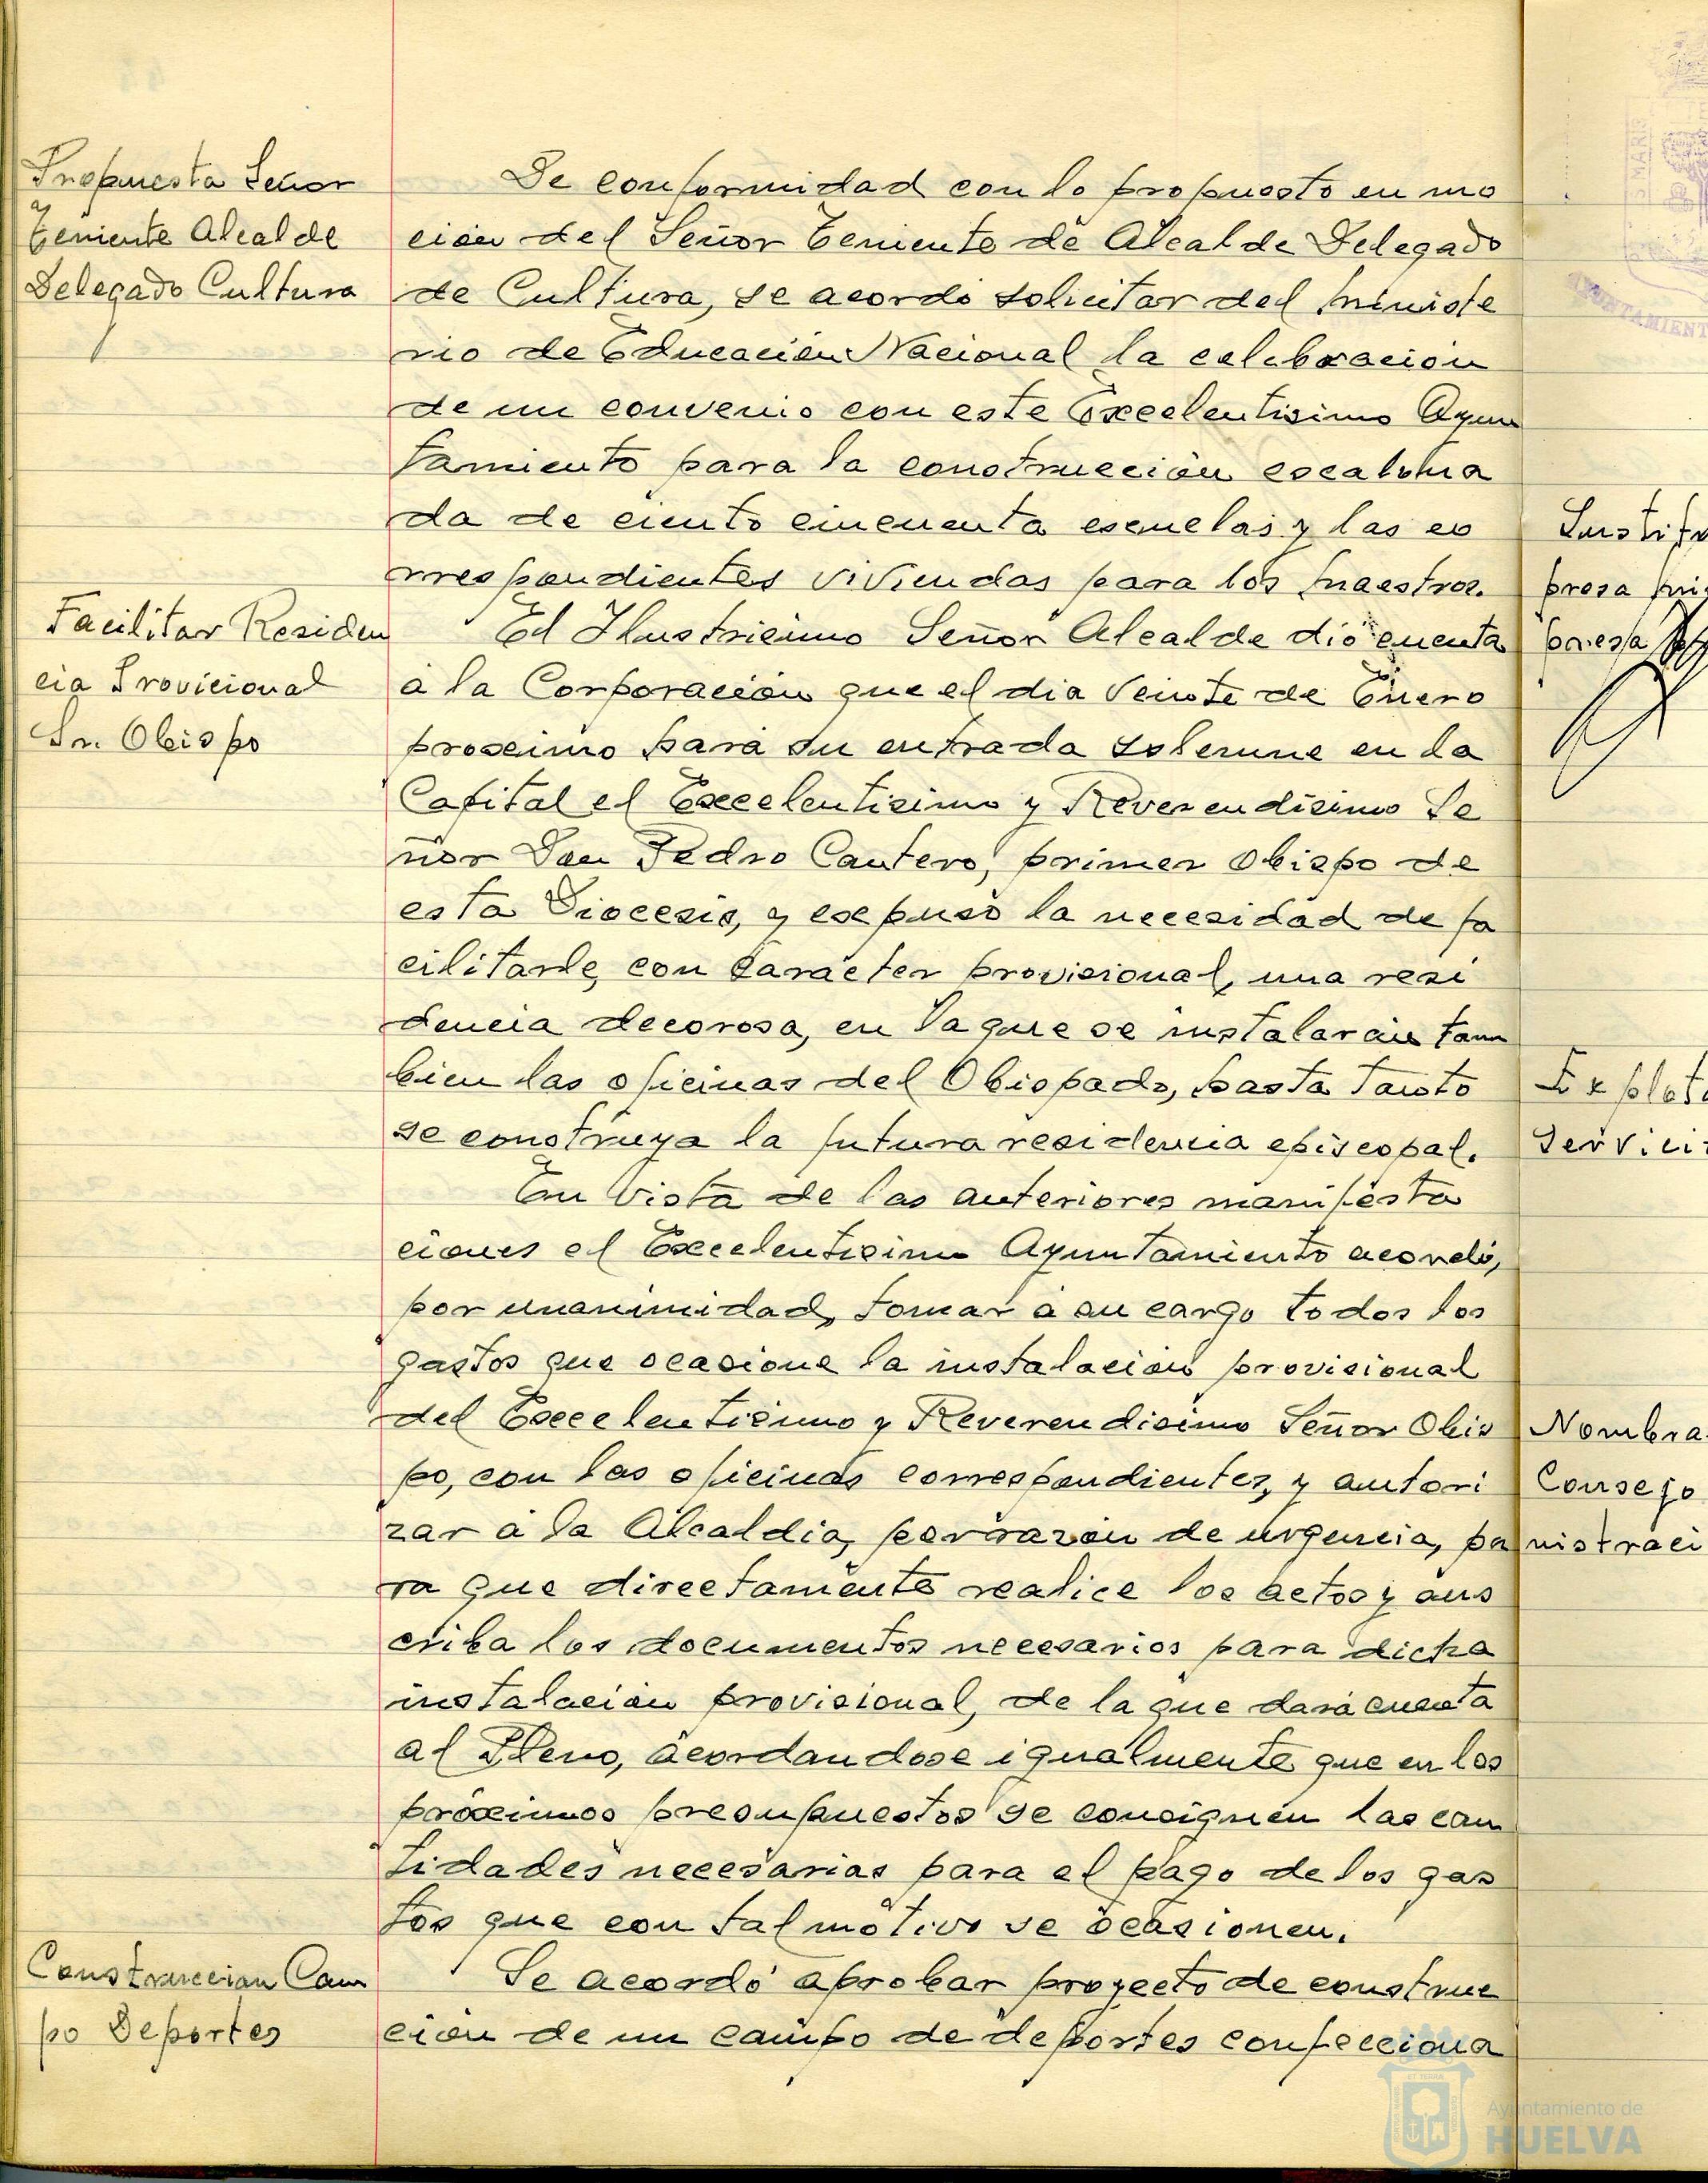 Propuesta Señor
Teniente Alcalde
Delegado Cultura
De conformidad con lo propuesto en mo
cion del Señor Teniente de Alcalde Delegado
de Cultura, se acordó solicitar del Ministe
rio de Educación Nacional la celebracion
de un convenio con este Excelentisimo Ayun
tamiento para la construcción escalona
da de ciento cincuenta escuelas y las co
rrespondientes viviendas para los maestros.
Facilitar Residen
cia Provicional
Sr. Obispo
El Ilustrisimo Señor Alcalde dió cuenta
a la Corporación que el dia veinte de Enero
proximo hará su entrada solemne en la
Capital el Excelentisimo y Reverendisimo Se
ñor Don Pedro Cantero, primer Obispo de
esta Diocesis, y expuso la necesidad de fa
cilitarle, con caracter provisional, una resi
dencia decorosa, en la que se instalarán tam
bien las oficinas del Obispado, hasta tanto
se construya la futura residencia episcopal.
En vista de las anteriores manifesta
ciones el Excelentisimo Ayuntamiento acordó,
por unanimidad, tomar a su cargo todos los
gastos que ocasione la instalación provisional
del Excelentisimo y Reverendisimo Señor Obis
po, con las oficinas correspondientes, y autori
zar a la Alcaldia, por razón de urgencia, pa
ra que directamente realice los actos y sus
criba los documentos necesarios para dicha
instalación provisional, de la que dará cuenta
al Pleno, acordandose igualmente que en los
próximos presupuestos se consignen las can
tidades necesarias para el pago de los gas
tos que con tal motivo se ocasionen.
Construccion Cam
po Deportes
Se acordó aprobar proyecto de construc
ción de un campo de deportes confecciona
presa
Explota
Servici
Nombra
Consejo
nistraci
AYUNTAMIENT
Ayuntamiento de
HUELVA